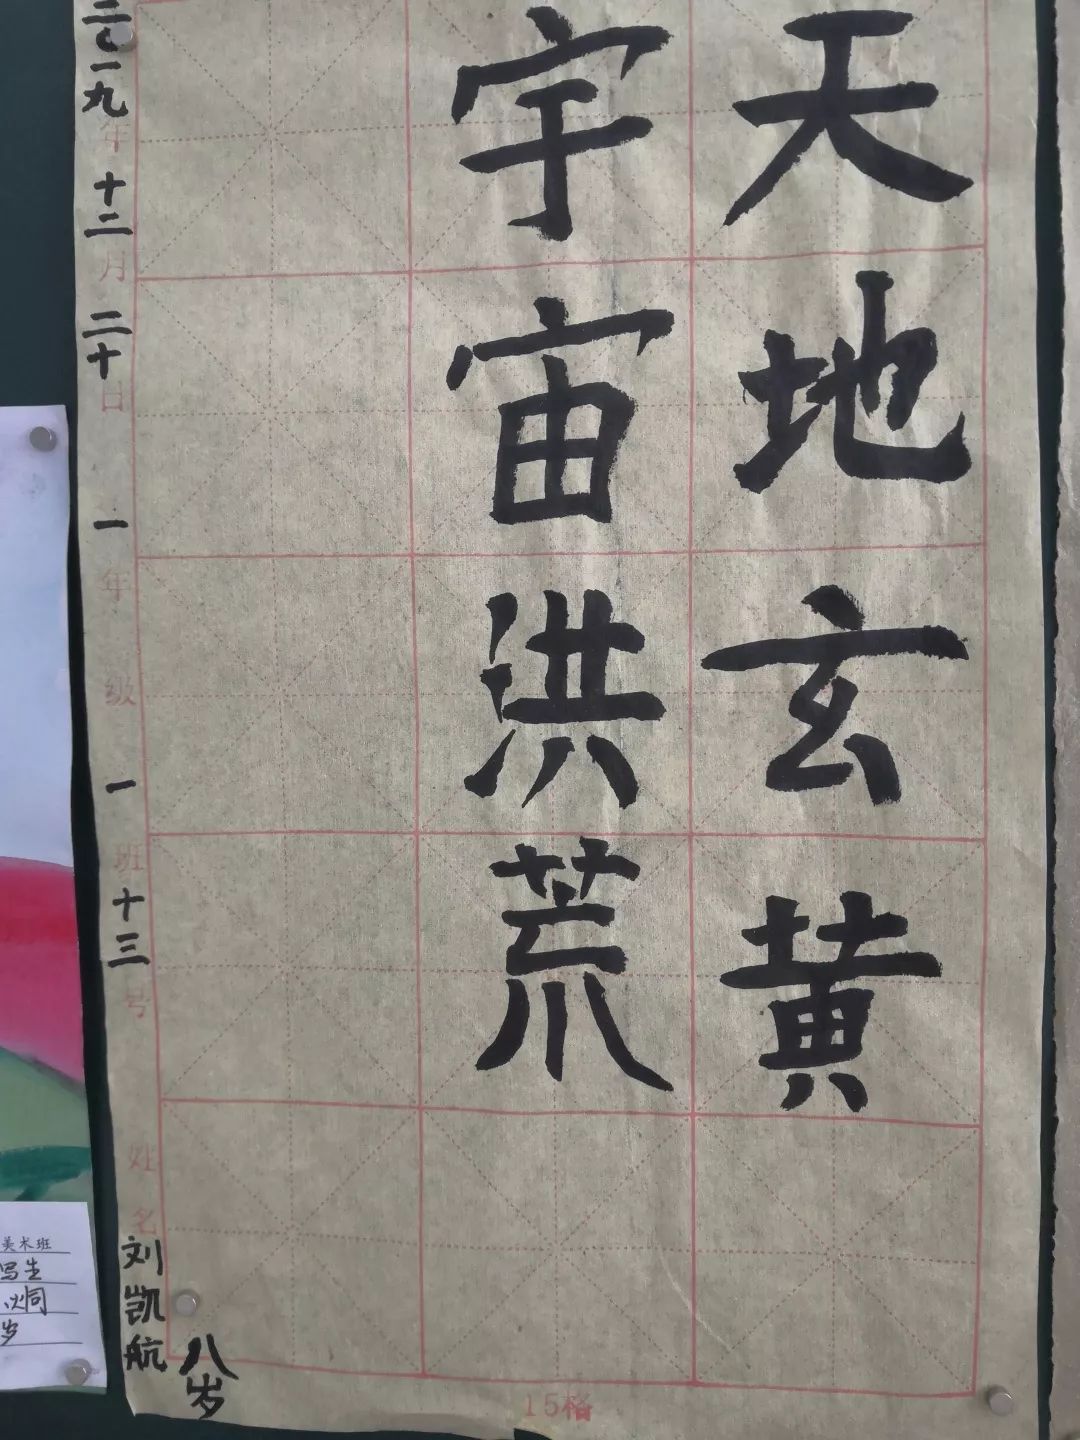 天地玄黄
宇宙洪荒
二〇一九年十二月二十日 一年级一班十三号 姓名刘凯航
八岁
15格
美术班
写生
炯
岁